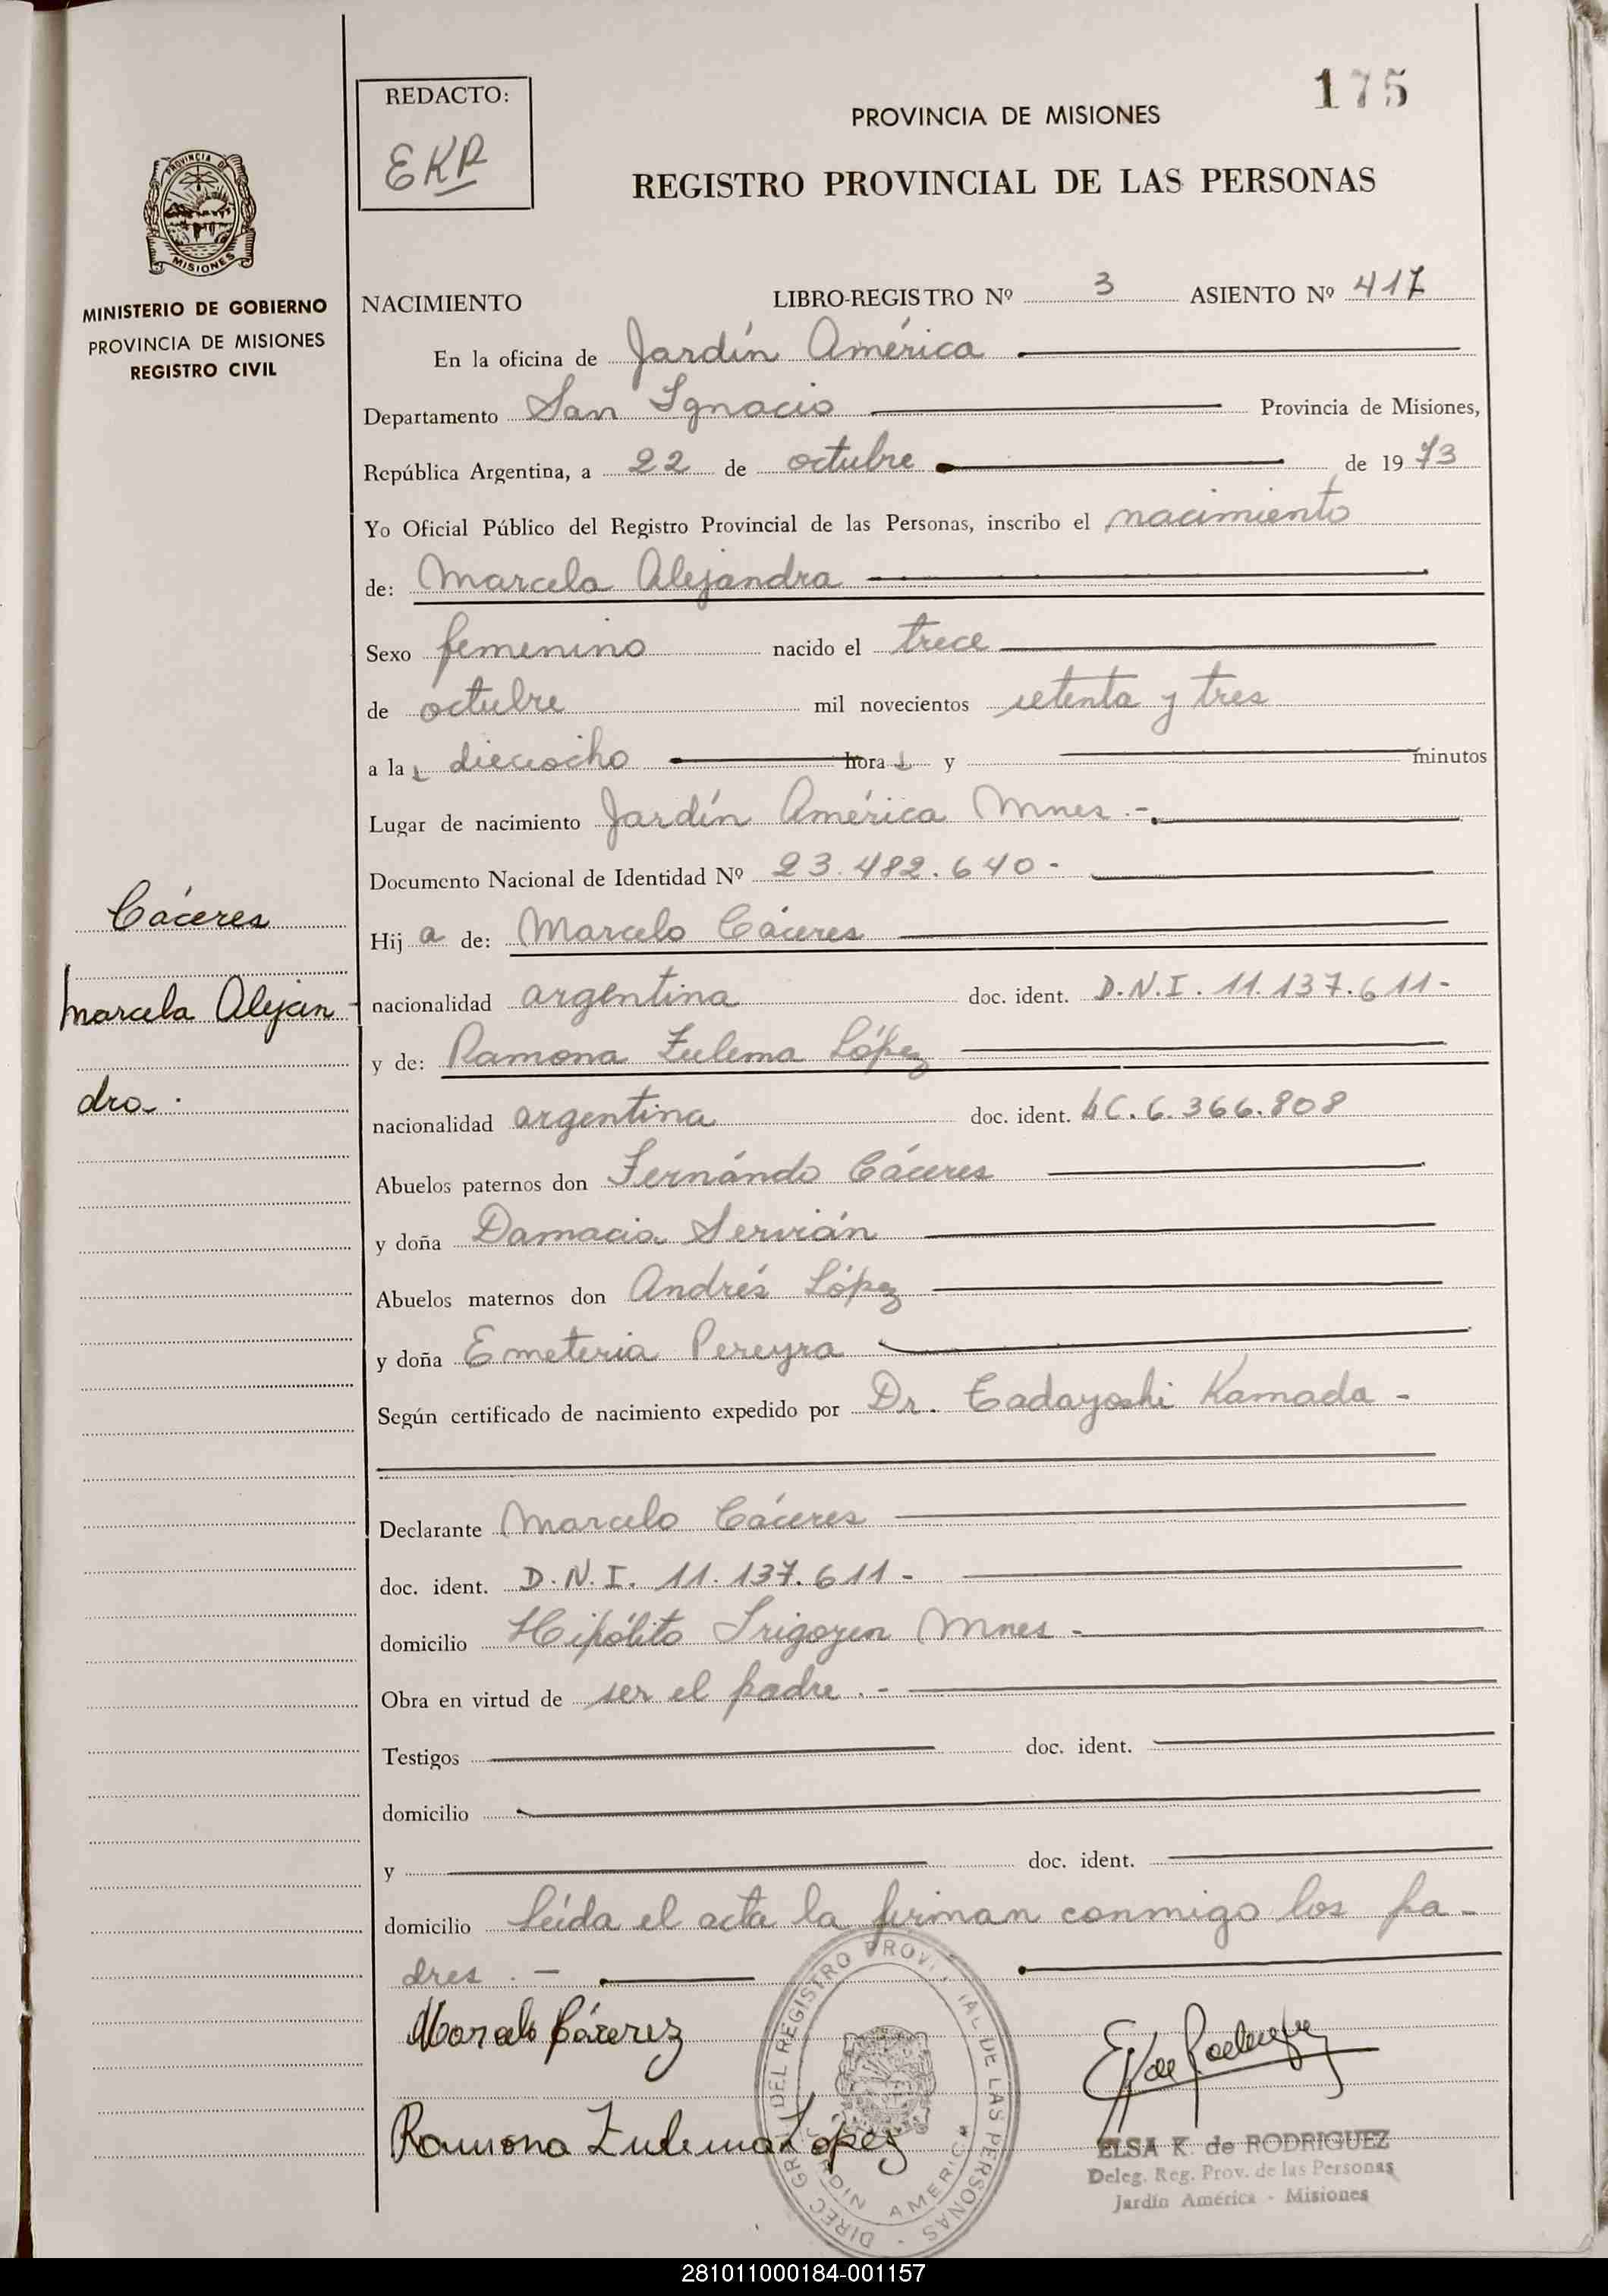 175
REDACTO:
EKR
PROVINCIA DE MISIONES
REGISTRO PROVINCIAL DE LAS PERSONAS
PROVINCIA DE
MISIONES
MINISTERIO DE GOBIERNO
PROVINCIA DE MISIONES
REGISTRO CIVIL
NACIMIENTO LIBRO-REGISTRO Nº 3 ASIENTO Nº 417
En la oficina de Jardín América
Departamento San Ignacio Provincia de Misiones,
República Argentina, a 22 de octubre de 1973
Yo Oficial Público del Registro Provincial de las Personas, inscribo el nacimiento
de: Marcela Alejandra
Sexo femenino nacido el trece
de octubre mil novecientos setenta y tres
a las dieciocho horas y minutos
Lugar de nacimiento Jardín América Mnes.-
Documento Nacional de Identidad Nº 23.482.640-
Cáceres
Marcela Alejan-
dra.
Hija de: Marcelo Cáceres
nacionalidad argentina doc. ident. D.N.I. 11.137.611-
y de: Ramona Zulema López
nacionalidad argentina doc. ident. LC. 6.366.808
Abuelos paternos don Fernándo Cáceres
y doña Damacia Servián
Abuelos maternos don Andrés López
y doña Emeteria Pereyra
Según certificado de nacimiento expedido por Dr. Tadayoshi Kamada -
Declarante Marcelo Cáceres
doc. ident. D.N.I. 11.137.611-
domicilio Hipólito Irigoyen Mnes -
Obra en virtud de ser el padre.-
Testigos doc. ident.
domicilio
y doc. ident.
domicilio Leída el acta la firman conmigo los pa-
dres.-
Marcelo Cácerez
Ramona Zulema López
DIREC GRAL DEL REGISTRO PROV. DE LAS PERSONAS
JARDIN AMERICA
ELSA K. de RODRIGUEZ
Deleg. Reg. Prov. de las Personas
Jardín América - Misiones
281011000184-001157